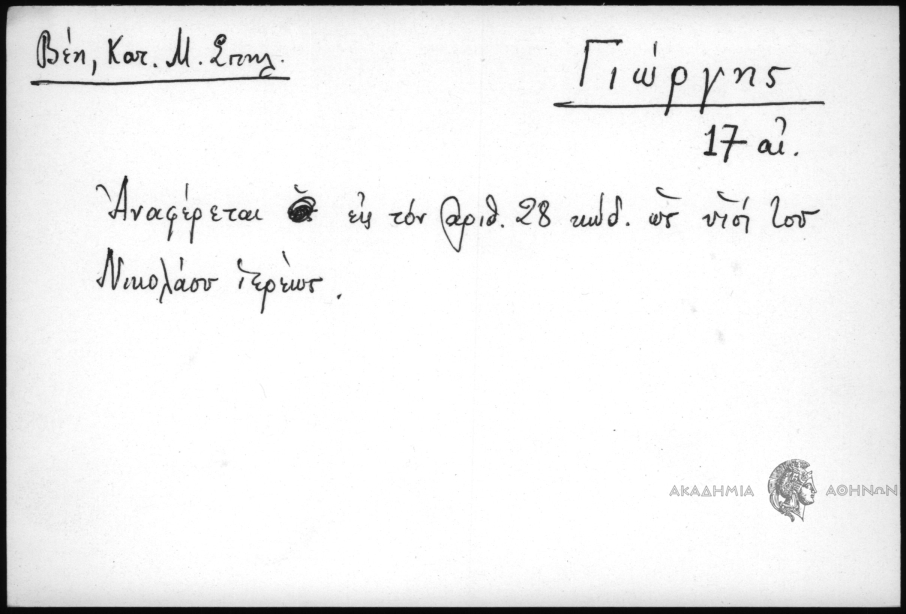 Βέη, Κατ. Μ. Σπηλ.
Γιώργης
17 αἰ.
Ἀναφέρεται εἰς τόν ἀριθ. 28 κώδ. ὡς υἱός τοῦ
Νικολάου ἱερέως.
ΑΚΑΔΗΜΙΑ ΑΘΗΝΩΝ